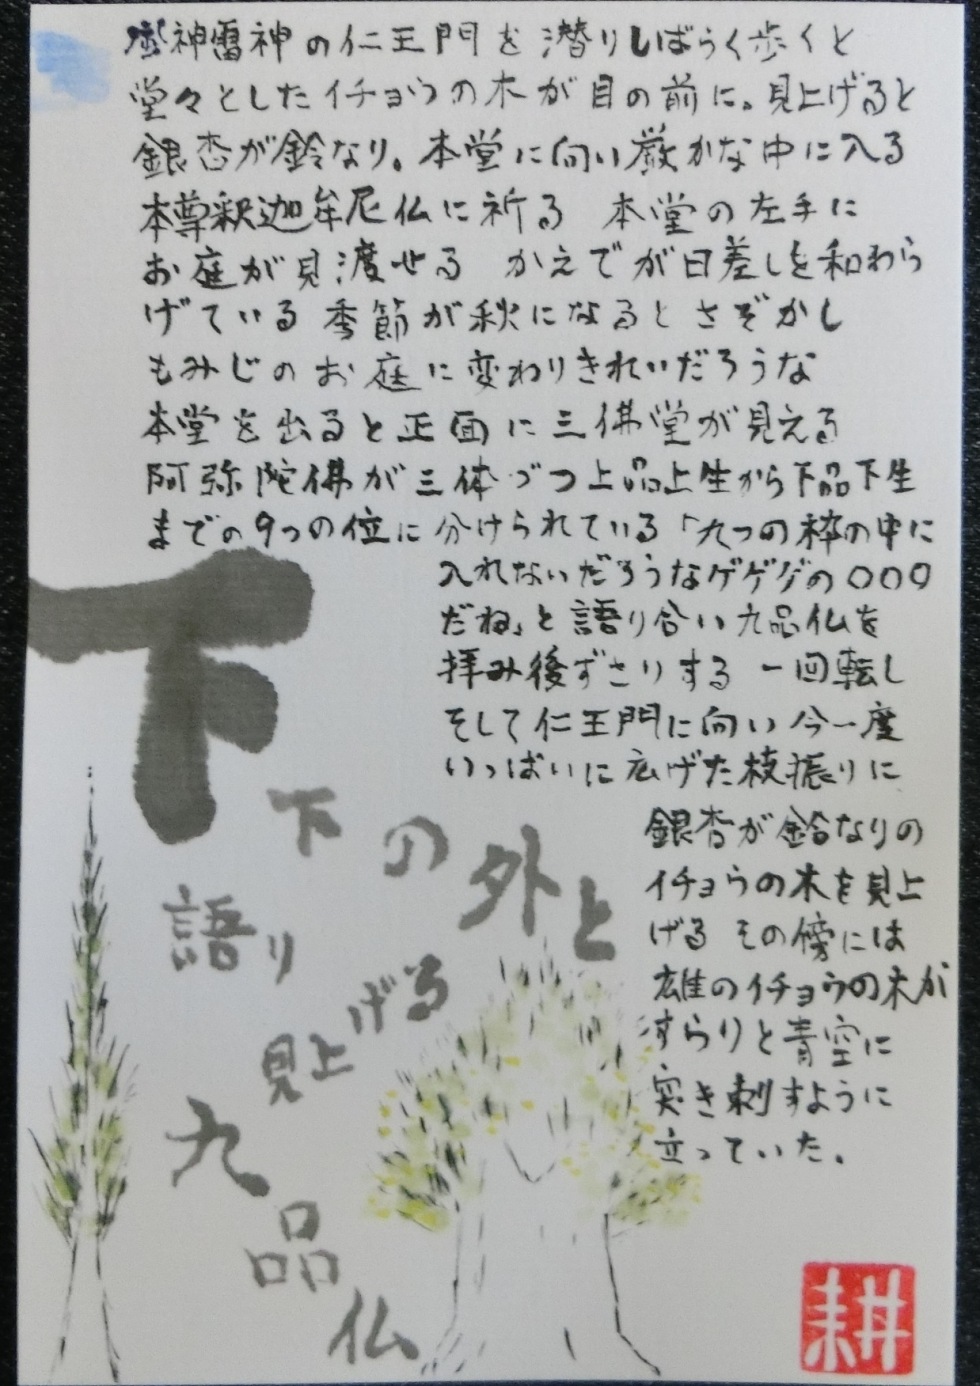 風神雷神の仁王門を潜りしばらく歩くと
堂々としたイチョウの木が目の前に。見上げると
銀杏が鈴なり。本堂に向い厳かな中に入る
本尊釈迦牟尼仏に祈る 本堂の左手に
お庭が見渡せる かえでが日差しを和わら
げている 季節が秋になるとさぞかし
もみじのお庭に変わりきれいだろうな
本堂を出ると正面に三佛堂が見える
阿弥陀佛が三体づつ上品上生から下品下生
までの9つの位に分けられている「九つの枠の中に
入れないだろうなゲゲゲの〇〇〇
だね」と語り合い九品仏を
拝み後ずさりする 一回転し
そして仁王門に向い今一度
いっぱいに広げた枝振りに
銀杏が鈴なりの
イチョウの木を見上
げる その傍には
雄のイチョウの木が
すらりと青空に
突き刺すように
立っていた。
下
下の外と
語り
見上げる
九品仏
耕